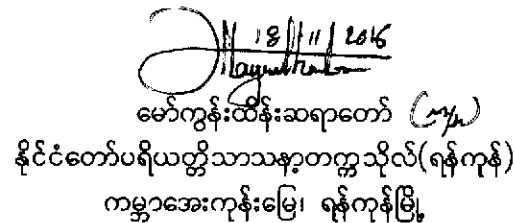 18/11/2016
မော်ကွန်းထိန်းဆရာတော်
နိုင်ငံတော်ပရိယတ္တိသာသနာ့တက္ကသိုလ်(ရန်ကုန်)
ကမ္ဘာအေးကုန်းမြေ၊ ရန်ကုန်မြို့